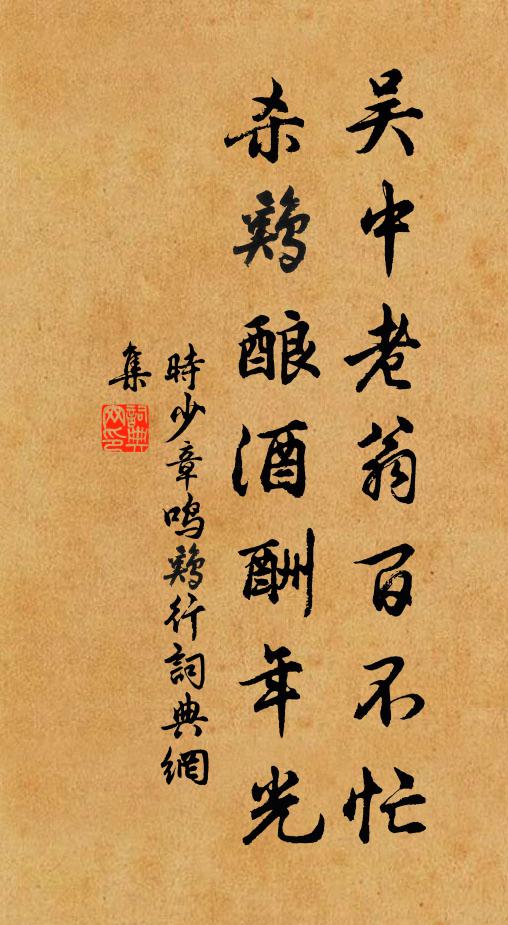 吴中老翁百不忙
杀鶏酿酒酬年光
時少章鳴鶏行詞典網
集
詞典網印